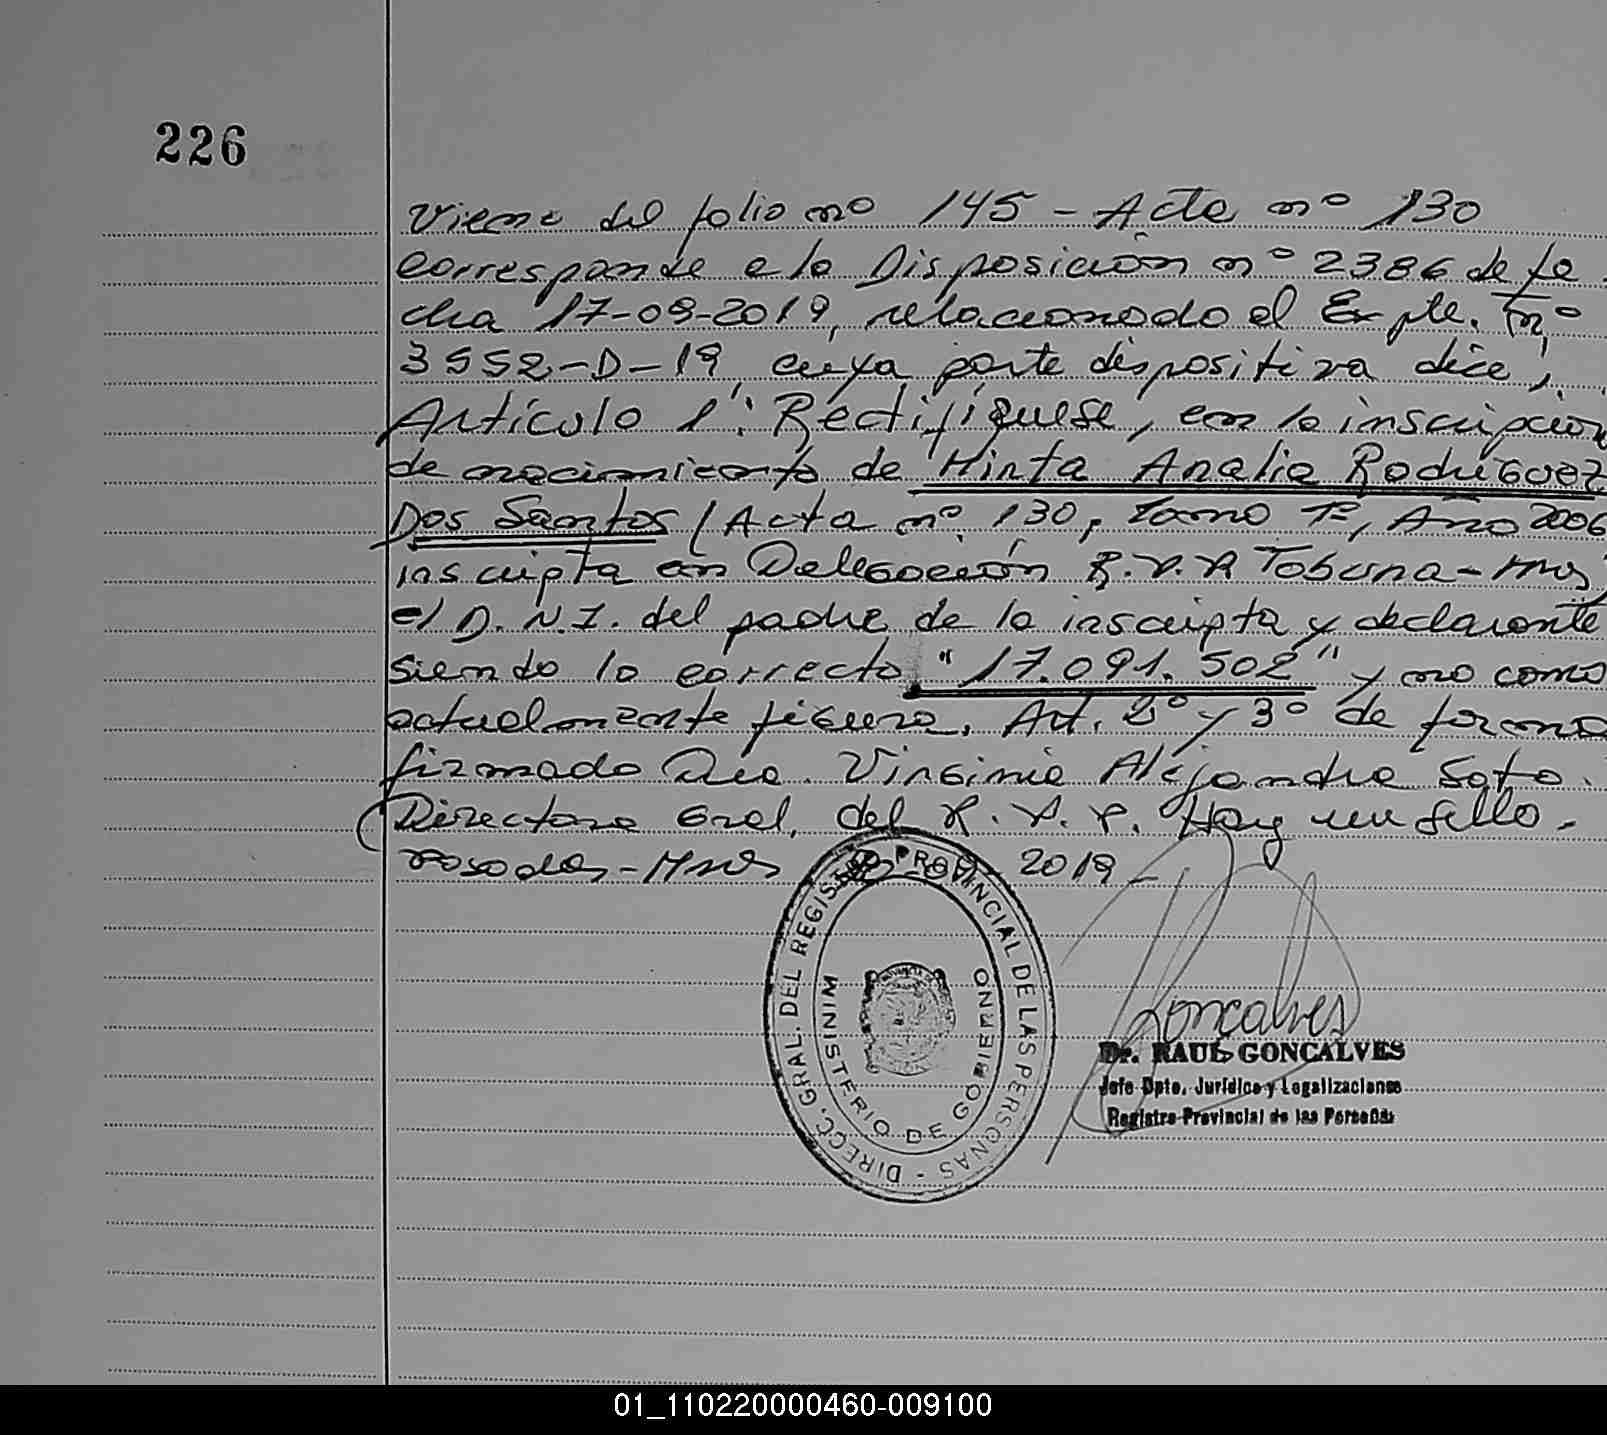 226
Viene del folio nº 145 - Acta nº 130
corresponde a la Disposición nº 2386 de fe
cha 17-09-2019, relacionado al Expte. nº
3552-D-19, cuya parte dispositiva dice,
Artículo 1º: Rectifíquese, en la inscripción
de nacimiento de "Mirta Analia Rodriguez
Dos Santos (Acta nº 130, Tomo 1º, Año 2006
inscripta en Delegación R.P.P Tobuna-Mnes)
el D.N.I. del padre de la inscripta y declarante
siendo lo correcto "17.091.502" y no como
actualmente figura. Art. 2º y 3º de forma
firmado Dra. Virginia Alejandra Soto.
Directora Gral. del R.P.P. Hay un sello.
Posadas-Mnes 2019
DIRECC. GRAL. DEL REGISTRO PROVINCIAL DE LAS PERSONAS -
MINISTERIO DE GOBIERNO
Goncalves
Dr. RAUL GONCALVES
Jefe Dpto. Jurídico y Legalizaciones
Registro Provincial de las Personas
01_110220000460-009100